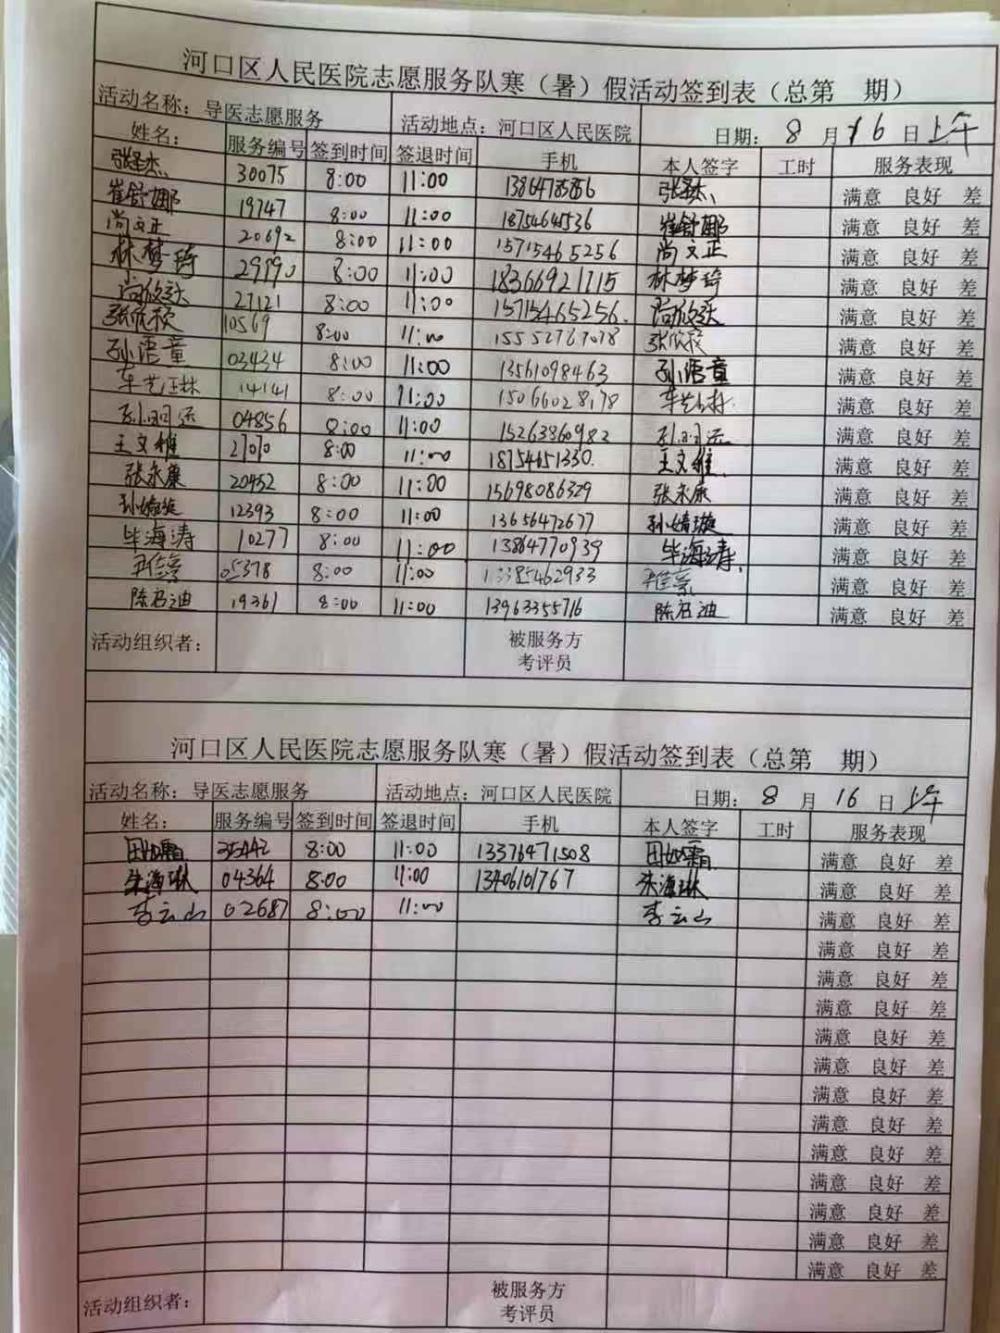 河口区人民医院志愿服务队寒（暑）假活动签到表（总第 期）
活动名称：导医志愿服务 活动地点：河口区人民医院 日期：8月16日上午
姓名： 服务编号 签到时间 签退时间 手机 本人签字 工时 服务表现
30075 8:00 11:00 满意 良好 差
崔舒娜 19747 8:00 11:00 18754641536 崔舒娜 满意 良好 差
尚文正 20692 8:00 11:00 15715465256 尚文正 满意 良好 差
林梦琦 29790 8:00 11:00 18366921715 林梦琦 满意 良好 差
尚欣跃 27121 8:00 11:00 15715465256. 尚欣跃 满意 良好 差
10569 8:00 11:00 15552767078 满意 良好 差
孙语童 03434 8:00 11:00 13561098463 孙语童 满意 良好 差
14141 8:00 11:00 15066028178 满意 良好 差
04856 8:00 11:00 15263860982 满意 良好 差
王文雅 8:00 11:00 18754651330. 王文雅 满意 良好 差
张永康 20452 8:00 11:00 15698086329 张永康 满意 良好 差
孙婧璇 12393 8:00 11:00 13656472677 孙婧璇 满意 良好 差
毕海涛 10277 8:00 11:00 13864770939 毕海涛 满意 良好 差
05378 8:00 11:00 13385462933 满意 良好 差
陈君迪 19361 8:00 11:00 13963355716 陈君迪 满意 良好 差
活动组织者： 被服务方
考评员
河口区人民医院志愿服务队寒（暑）假活动签到表（总第 期）
活动名称：导医志愿服务 活动地点：河口区人民医院 日期：8月16日上午
姓名： 服务编号 签到时间 签退时间 手机 本人签字 工时 服务表现
田如霜 35442 8:00 11:00 13376471508 田如霜 满意 良好 差
朱海琳 04364 8:00 11:00 13406101767 朱海琳 满意 良好 差
李云山 02687 8:00 11:00 李云山 满意 良好 差
满意 良好 差
满意 良好 差
满意 良好 差
满意 良好 差
满意 良好 差
满意 良好 差
满意 良好 差
满意 良好 差
满意 良好 差
满意 良好 差
满意 良好 差
满意 良好 差
活动组织者： 被服务方
考评员